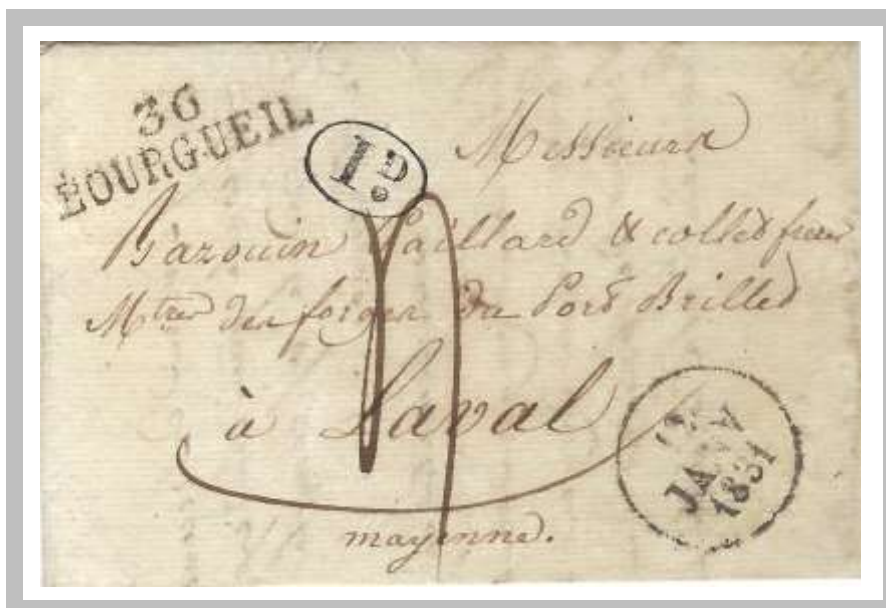 36
BOURGUEIL
1.D
Messieurs
Bazouin Paillard & collet freres
Mtres des forges du Port Brillet
à Laval
mayenne.
JANV
1831